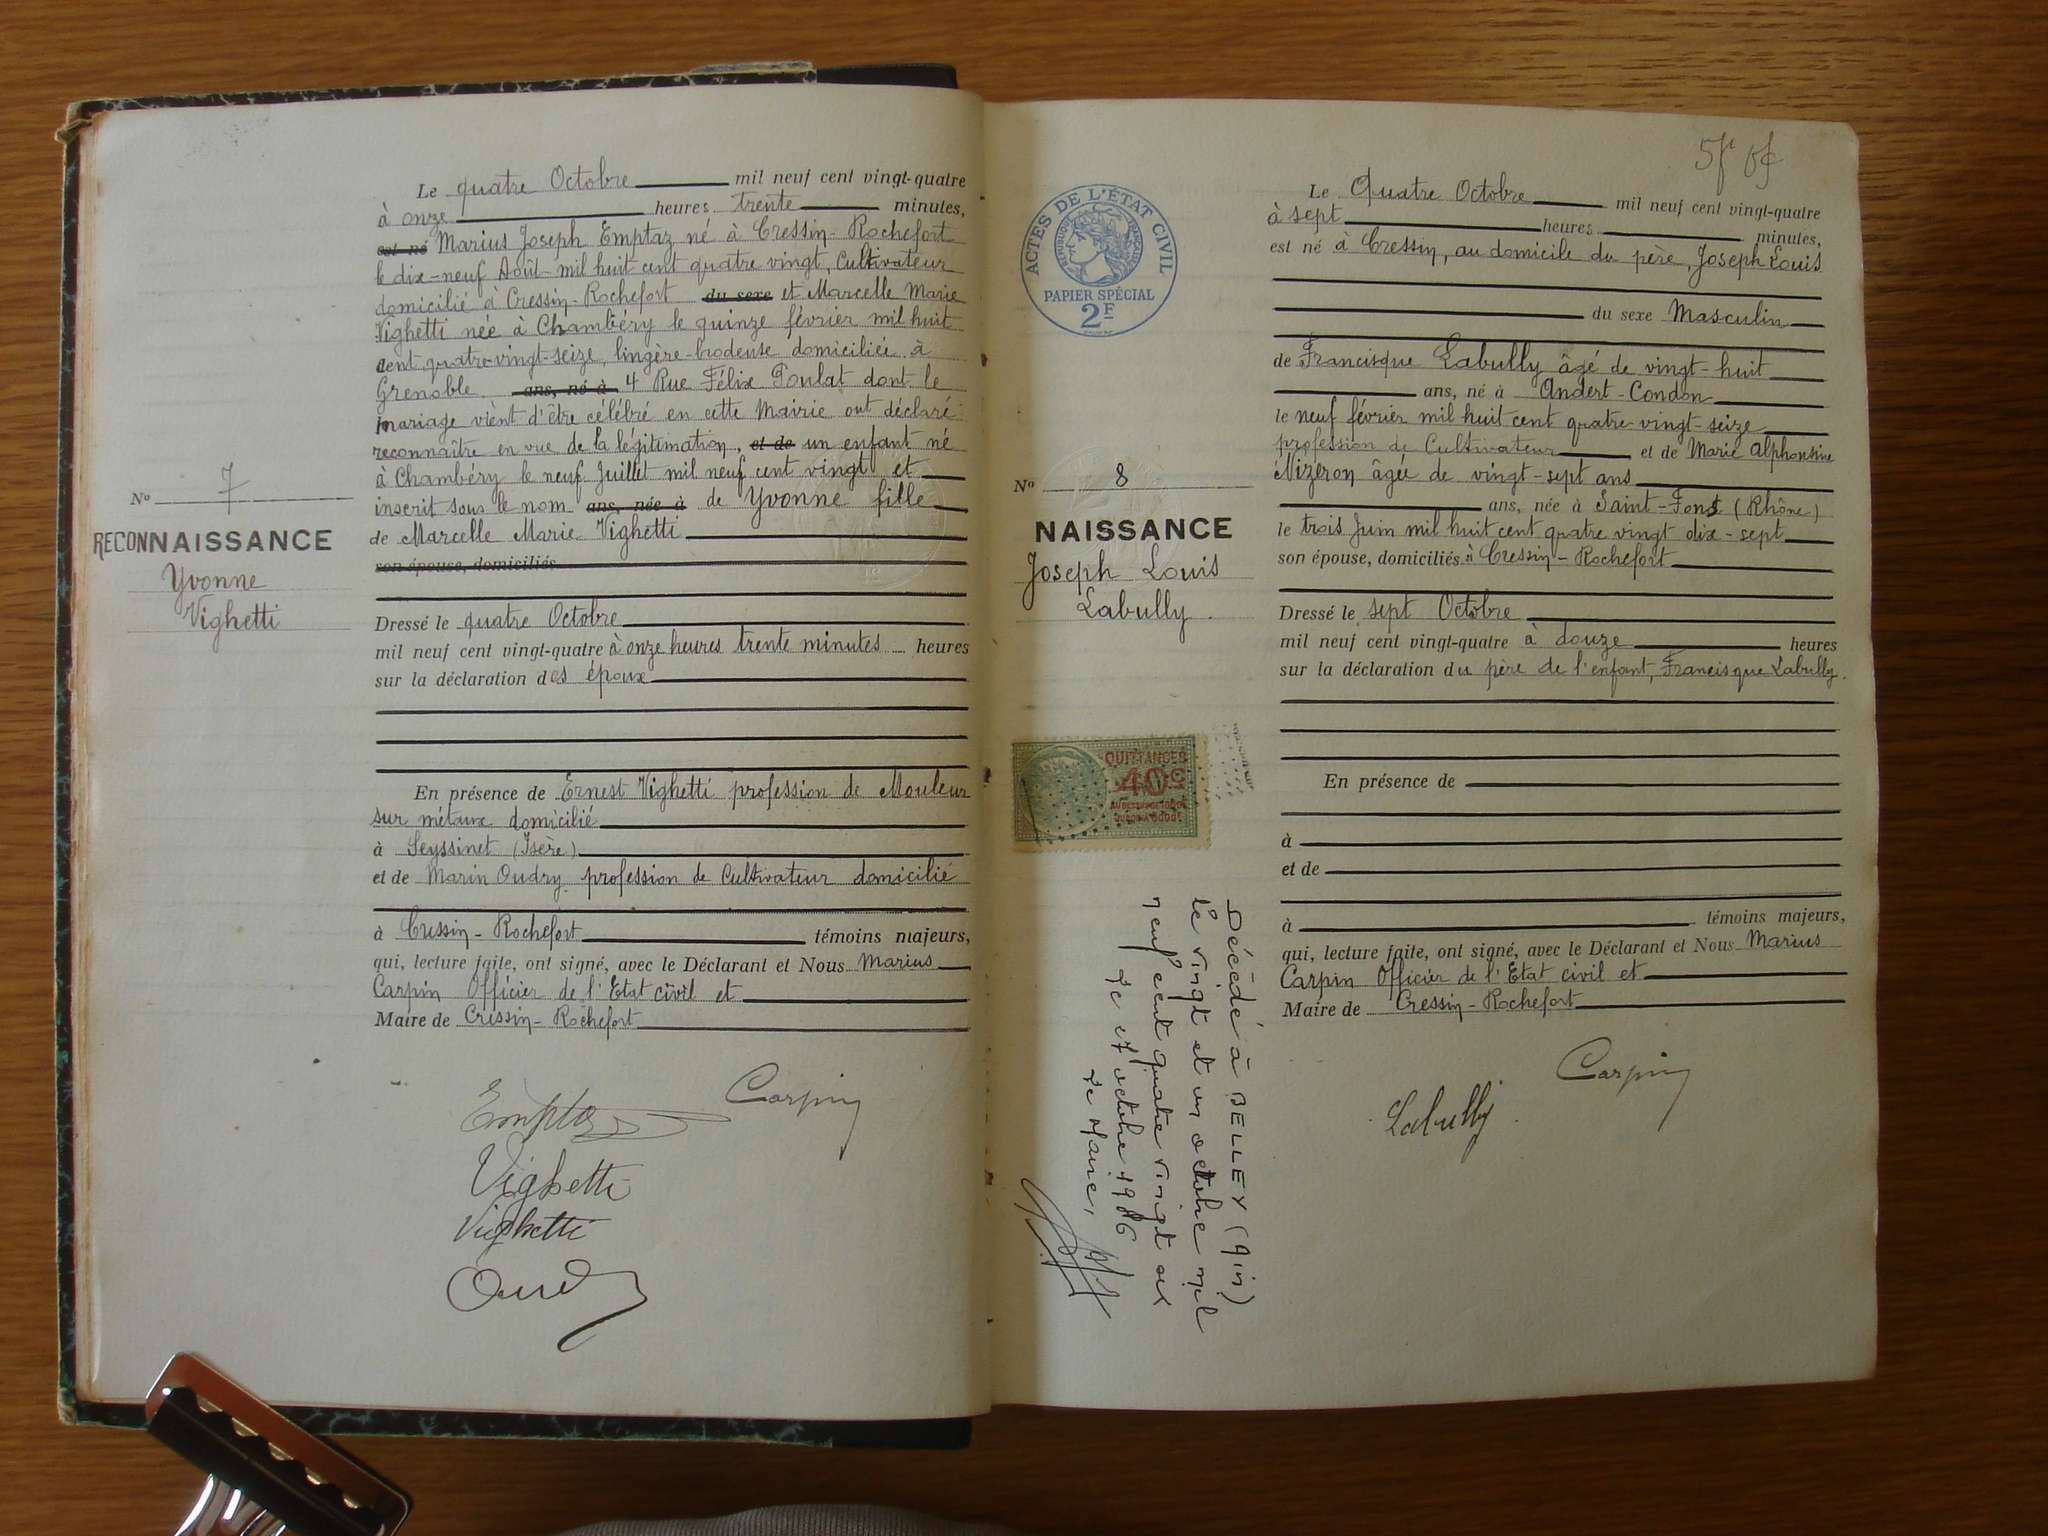 Le quatre Octobre mil neuf cent vingt-quatre
à onze heures trente minutes,
est né Marius Joseph Emptaz né à Cressin-Rochefort
le dix-neuf Août mil huit cent quatre vingt, Cultivateur
domicilié à Cressin-Rochefort du sexe et Marcelle Marie
Vighetti née à Chambéry le quinze février mil huit
cent quatre-vingt-seize, lingère-brodeuse domiciliée à
Grenoble ans, né à 4 Rue Félix Poulat dont le
mariage vient d'être célébré en cette Mairie ont déclaré
reconnaître en vue de la légitimation, et de un enfant né
à Chambéry le neuf Juillet mil neuf cent vingt et
inscrit sous le nom ans, née à de Yvonne fille
de Marcelle Marie Vighetti
son épouse, domiciliés
N° 7
RECONNAISSANCE
Yvonne
Vighetti
Dressé le quatre Octobre
mil neuf cent vingt-quatre à onze heures trente minutes heures
sur la déclaration des époux
En présence de Ernest Vighetti profession de Mouleur
sur métaux domicilié
à Seyssinet (Isère)
et de Marin Oudry profession de Cultivateur domicilié
à Cressin-Rochefort témoins majeurs,
qui, lecture faite, ont signé, avec le Déclarant et Nous Marius
Carpin Officier de l'Etat civil et
Maire de Cressin-Rochefort
Carpin
Emptaz
Vighetti
Vighetti
Oudry
ACTES DE L'ÉTAT CIVIL
RÉPUBLIQUE FRANÇAISE
PAPIER SPÉCIAL
2F
Le Quatre Octobre mil neuf cent vingt-quatre
à sept heures minutes,
est né à Cressin, au domicile du père, Joseph Louis
du sexe Masculin
de Francisque Labully âgé de vingt-huit
ans, né à Andert-Condon
le neuf février mil huit cent quatre-vingt-seize
profession de Cultivateur et de Marie Alphonsine
Nizeron âgée de vingt-sept ans
ans, née à Saint-Fons (Rhône)
le trois Juin mil huit cent quatre vingt dix-sept
son épouse, domiciliés à Cressin-Rochefort
N° 8
NAISSANCE
Joseph Louis
Labully
Dressé le sept Octobre
mil neuf cent vingt-quatre à douze heures
sur la déclaration du père de l'enfant, Francisque Labully.
En présence de
à
et de
à témoins majeurs,
qui, lecture faite, ont signé, avec le Déclarant et Nous Marius
Carpin Officier de l'Etat civil et
Maire de Cressin-Rochefort
Carpin
Labully
QUITTANCES
40c
Décédé à BELLEY (Ain)
le vingt et un octobre mil
neuf cent quatre vingt six
Le 27 octobre 1986
Le Maire,